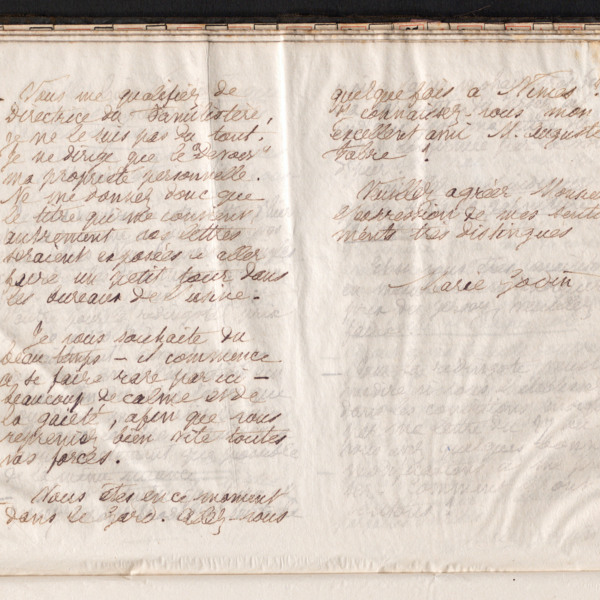 Vous me qualifiez de
Directrice du Familistère,
je ne le suis pas du tout.
Je ne dirige que le "Devoir"
ma propriété personnelle.
Ne me donnez donc que
le titre qui me convient
autrement vos lettres
seraient exposées à aller
faire un petit tour dans
les bureaux de l'usine.
Je vous souhaite du
beau temps — il commence
à se faire rare par ici —
beaucoup de calme et de
la gaieté, afin que vous
repreniez bien vite toutes
vos forces.
Vous êtes en ce moment
dans le Gard. Allez-vous
quelque fois à Nîmes
et connaissez-vous mon
excellent ami M. Auguste
Fabre ?
Veuillez agréer Monsieur
l'expression de mes senti
ments très distingués
Marie Godin